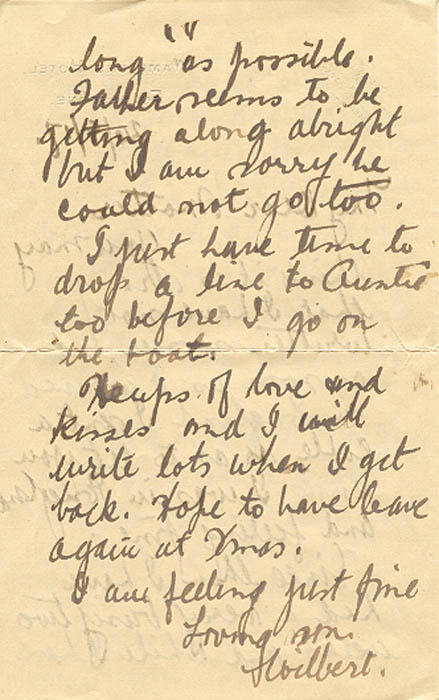 long " as possible.
Father seems to be
getting along alright
but I am sorry he
could not go too.
I just have time to
drop a line to Auntie
too before I go on
the boat.
Heaps of love and
kisses and I will
write lots when I get
back. Hope to have leave
again at Xmas.
I am feeling just fine
Loving son
Wilbert.